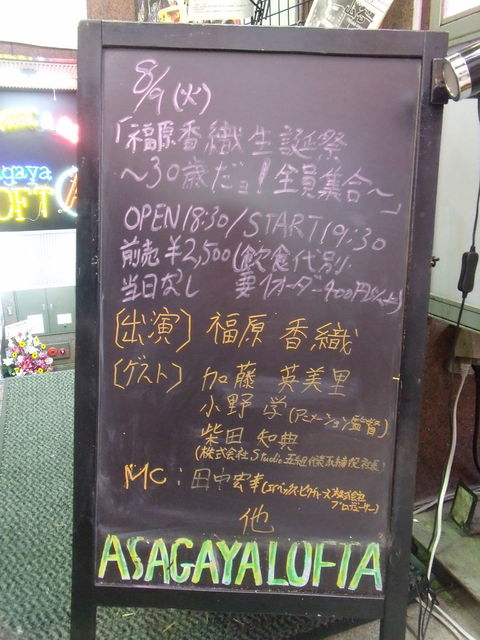 8/9(火)
「福原香織生誕祭
〜30歳だョ！全員集合〜」
OPEN18:30/START19:30
前売¥2,500(飲食代別)
当日なし 要1オーダー400円以上)
(出演) 福原 香織
(ゲスト) 加藤 英美里
小野 学(アニメーション監督)
柴田 知典
(株式会社Studio五組代表取締役社長)
MC: 田中宏幸(エイベックス・ピクチャーズ株式会社
プロデューサー)
他
ASAGAYALOFTA
gaya
OFT